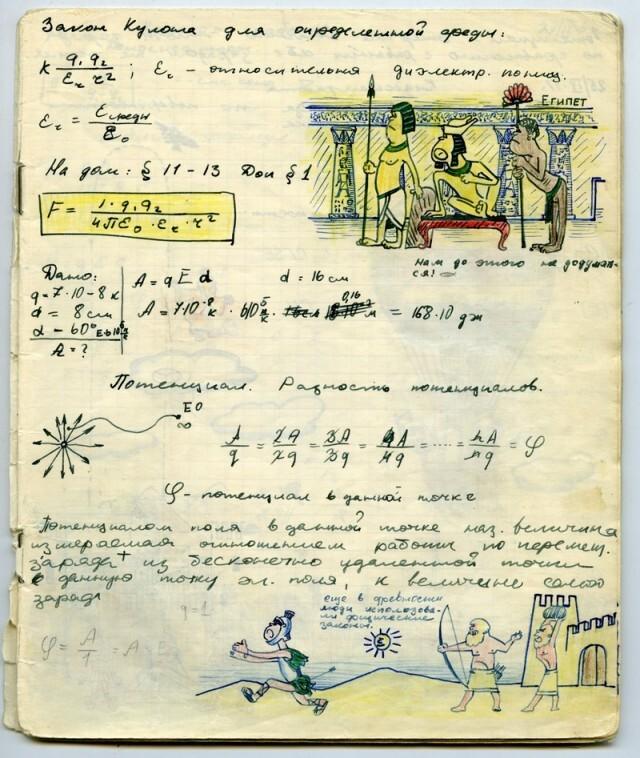 Закон Кулона для определенной среды:
K q₁ q₂ / Ԑᵣ r² ; Ԑᵣ – относительная диэлектр. прониц.
ЕГИПЕТ
Ԑᵣ = Ԑсреды / Ԑ₀
На дом: § 11 – 13 Доп § 1
F = 1·q₁q₂ / 4ПԐ₀·Ԑᵣ·r²
нам до этого не додумат-
ся!
Дано:
q = 7·10 – 8 к
d = 8 см
d – 60°
A = ?
A = q E d
d = 16 см
A = 7·10⁻⁸ к · 610⁵ · 0,16 м = 168·10 дж
Потенциал. Разность потенциалов.
E0
∞
A/q = 2A/2q = 3A/3q = 4A/4q = ······ = nA/nq = φ
φ – потенциал в данной точке
Потенциалом поля в данной точке наз. величина
измеряемая отношением работы по перемещ.
заряда + из бесконечно удаленной точки
в данную точку эл. поля, к величине самого
заряда
q = 1
φ = A/1 = A
еще в древности
люди использова-
ли физические
законы.